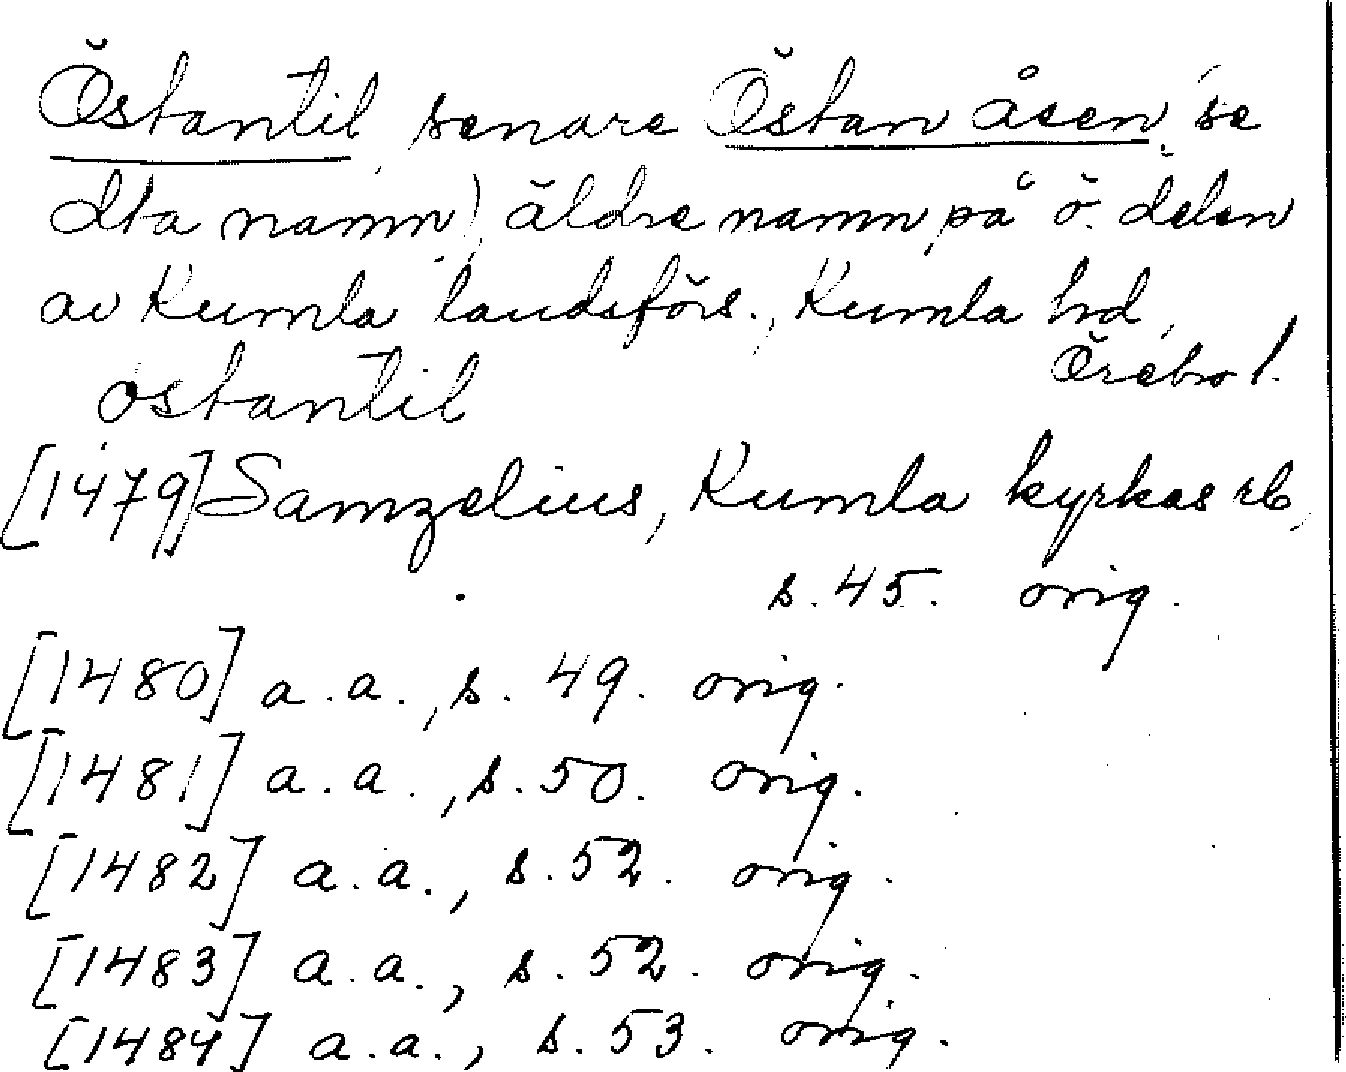 Östantil, senare Östan åsen, se
dta namn), äldre namn på ö. delen
av Kumla landsförs., Kumla hd,
Örebro l.
ostantil
[1479] Samzelius, Kumla kyrkas rb,
s. 45. orig.
[1480] a.a., s. 49. orig.
[1481] a.a., s. 50. orig.
[1482] a.a., s. 52. orig.
[1483] a.a., s. 52. orig.
[1484] a.a., s. 53. orig.